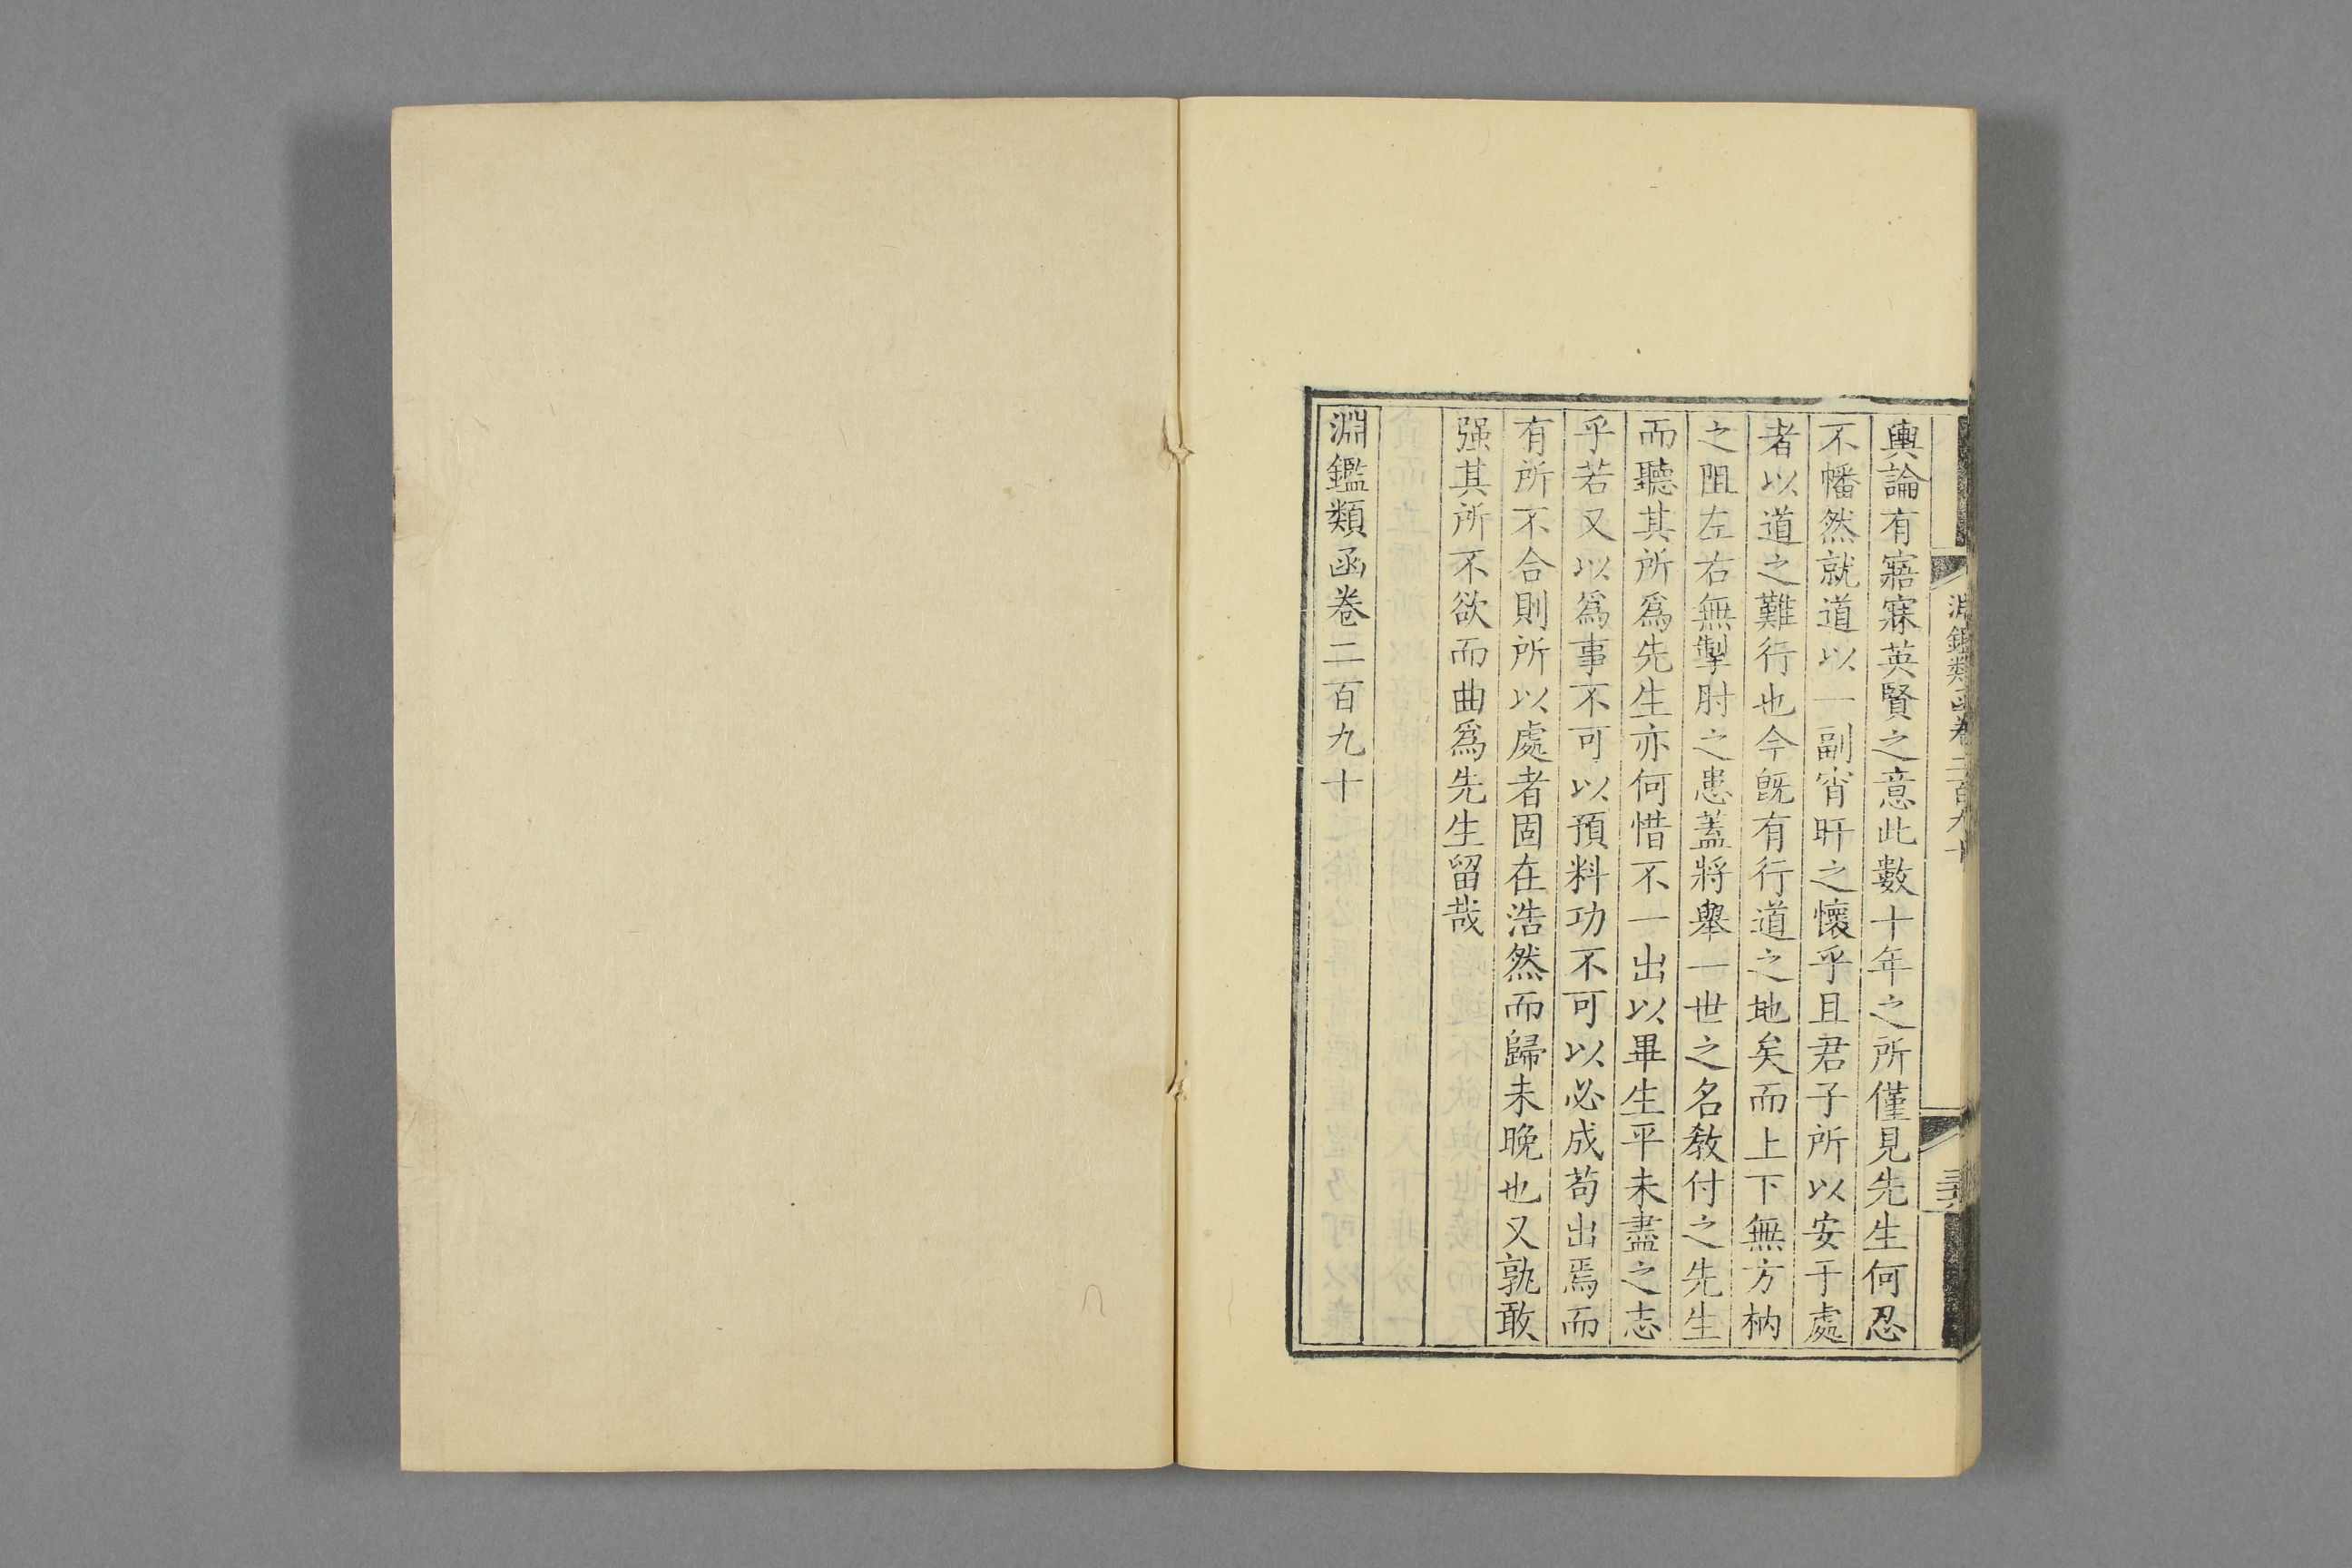 淵鑑類函卷二百九十
輿論有寤寐英賢之意此數十年之所僅見先生何忍
不幡然就道以一副宵旰之懷乎且君子所以安于處
者以道之難行也今旣有行道之地矣而上下無方枘
之阻左右無掣肘之患蓋將舉一世之名敎付之先生
而聽其所爲先生亦何惜不一出以畢生平未盡之志
乎若又以爲事不可以預料功不可以必成苟出焉而
有所不合則所以處者固在浩然而歸未晚也又孰敢
强其所不欲而曲爲先生留哉
淵鑑類函卷二百九十